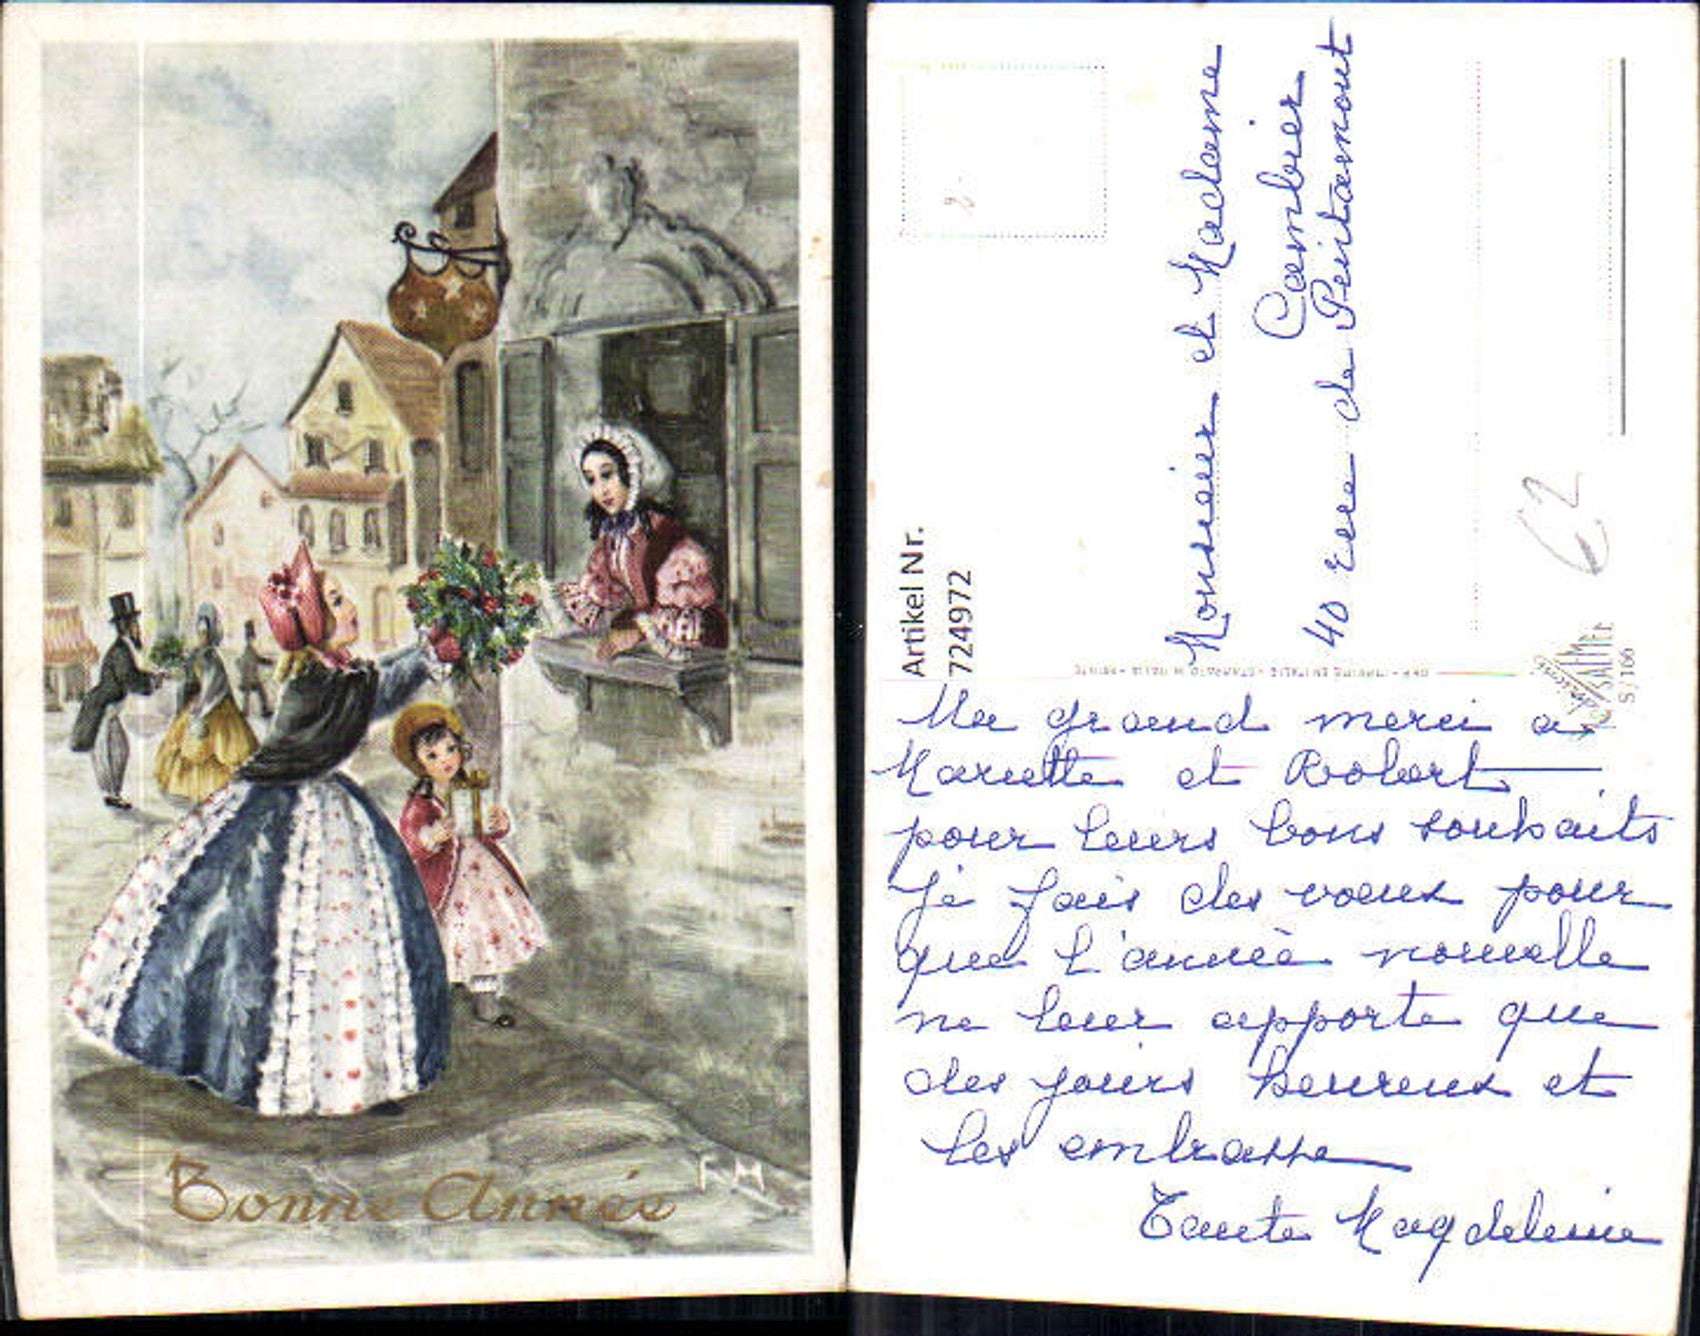 Bonne Année
F M
Artikel Nr.
724972
Monsieur et Madame
Cambier
40 rue de
€2
S/166
Un grand merci a
Mariette et Robert
pour leurs bons souhaits
Je fais des voeux pour
que l'année nouvelle
ne leur apporte que
des jours heureux et
les embrasse
Tante Magdeleine